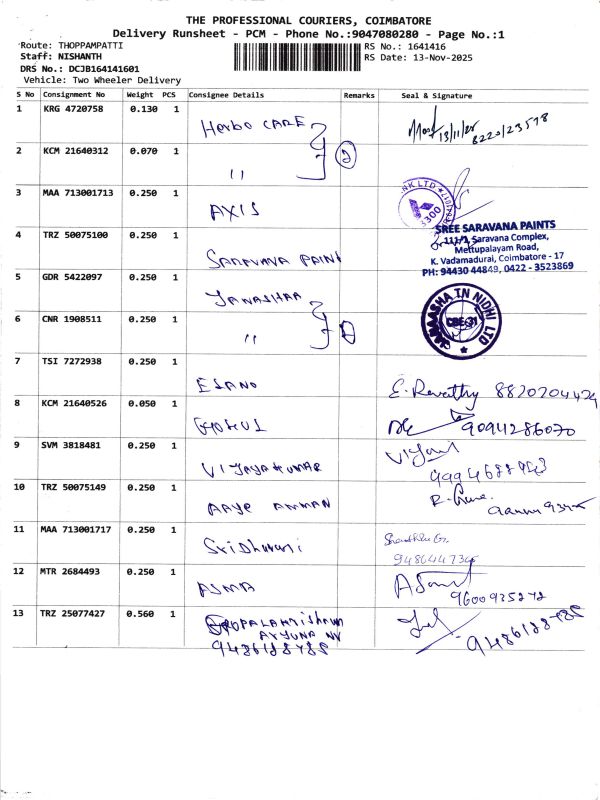 THE PROFESSIONAL COURIERS, COIMBATORE
Delivery Runsheet - PCM - Phone No.:9047080280 - Page No.:1
Route: THOPPAMPATTI
RS No.: 1641416
Staff: NISHANTH
RS Date: 13-Nov-2025
DRS No.: DCJB164141601
Vehicle: Two Wheeler Delivery
S No Consignment No Weight PCS Consignee Details Remarks Seal & Signature
1 KRG 4720758 0.130 1 Herbo CARE 13/11/25
2 KCM 21640312 0.070 1 " 2
3 MAA 713001713 0.250 1 AXIS
4 TRZ 50075100 0.250 1 SARAVANA PAINT
SREE SARAVANA PAINTS
111/1, Saravana Complex,
Mettupalayam Road,
K. Vadamadurai, Coimbatore - 17
PH: 94430 44849, 0422 - 3523869
5 GDR 5422097 0.250 1 JANASHAA
6 CNR 1908511 0.250 1 "
JANAASHA TN NIDHI LTD
CBE-31
7 TSI 7272938 0.250 1 ESANO E. Revathy
8 KCM 21640526 0.050 1 GOKUL 9094286070
9 SVM 3818481 0.250 1 VIJAYAKUMAR
10 TRZ 50075149 0.250 1 AAYE AMMAN
11 MAA 713001717 0.250 1 Sri Dharani
12 MTR 2684493 0.250 1 ASMA 9600935272
13 TRZ 25077427 0.560 1 GOPALAKRISHNAN
9486188785 9486188785